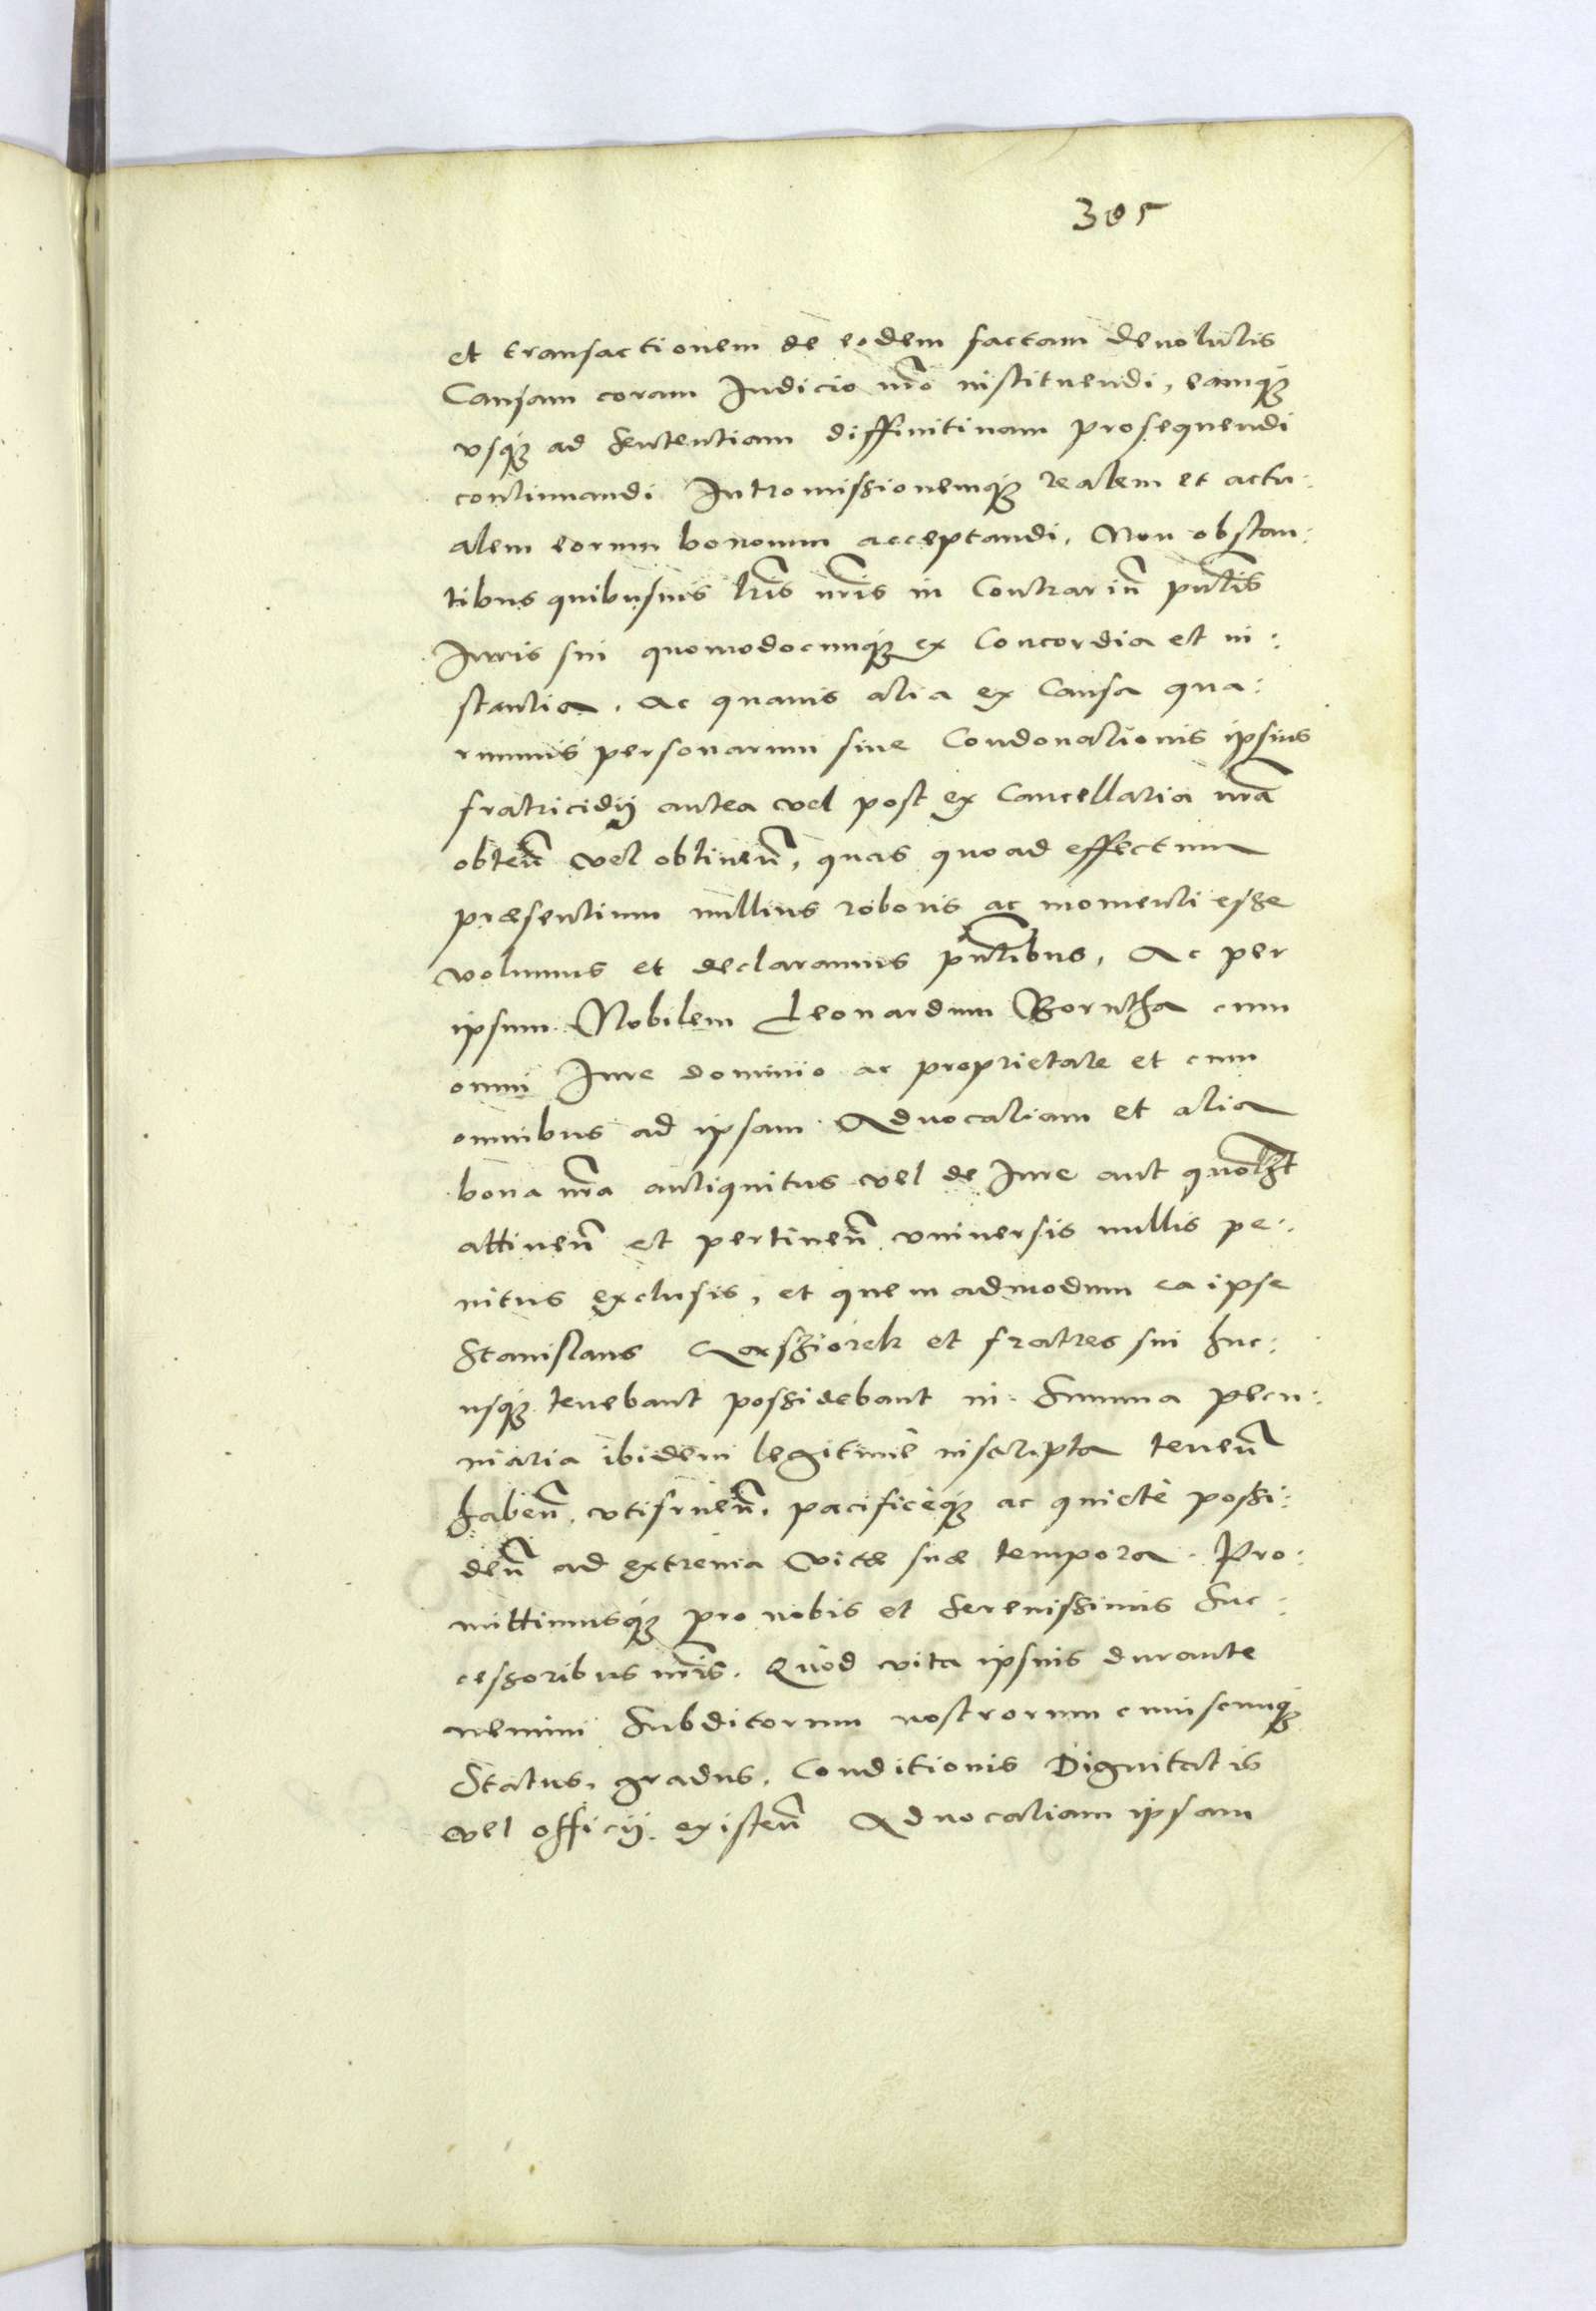 305
et transactionem de eodem factam devolutis
Causam coram Judicio nrõ instituendi, eamq3
vsq3 ad sententiam diffinitivam prosequendi
continuandi Intromissionemq3 realem et actu:
alem eorum bonorum acceptandi. Non obstan:
tibus quibusuis lrĩs nrĩs in Contrariũ pntĩs
Iuris sui quomodocunq3 ex Concordia et in:
stantia. Ac quauis alia ex Causa qua:
rumuis personarum siue Condonationis ipsius
fratricidij antea vel post ex Cancellaria nrã
obteñ vel obtineñ, quas quoad effectum
præsentium nullius roboris ac momenti esse
volumus et declaramus pñtibus. Ac per
ipsum Nobilem Leonardum Borutha cum
omni Iure dominio ac proprietate et cum
omnibus ad ipsam Aduocatiam et alia
bona nrã antiquitus vel de Iure aut quolt̃
attineñ et pertineñ vniuersis nullis pe:
nitus exclusis, et quemadmodum ea ipse
Stanislaus et fratres sui huc:
usq3 tenebant possidebant in Summa pecu:
niaria ibidem legitimè inscripta teneñ
habeñ, vtifrueñ. pacificèq3 ac quietè possi:
deñ ad extrema vitæ suæ tempora. Pro:
mittimusq3 pro nobis et Serenissimis Suc:
cessoribus nrĩs. Quòd vita ipsius durante
nemini Subditorum nostrorum cuiuscunq3
Status, gradus, Conditionis Dignitatis
vel officij existeñ Aduocatiam ipsam